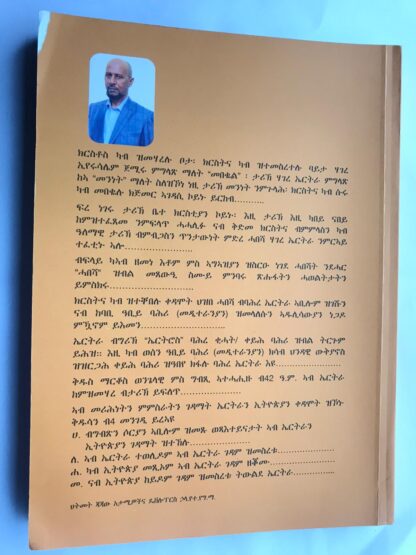 ክርስቶስ ካብ ዝመሃረሉ ቦታ፡ ክርስትና ካብ ዝተመስረተሉ ባይታ ሃገረ
ኢየሩሳሌም ጀሚሩ ምግላጽ ማለት "መበቈል" ፡ ታሪኽ ሃገረ ኤርትራ ምግላጽ
ከኣ "መንነት" ማለት ስለዝኾነ ነዚ ታሪኽ መንነት ንምጉላሕ፡ ክርስትና ካብ ሱሩ
ካብ መበቈሉ ክጅመር ኣገዳሲ ኮይኑ ይርከብ...........
ፍረ ነገሩ ታሪኽ ቤተ ክርስቲያን ኮይኑ፡ እዚ ታሪኽ እዚ ካበይ ናበይ
ከምዝተፈጸመ ንምፍላጥ ሓሓሊፉ ናብ ቅድመ ክርስቶስ ብምምላስን ካብ
ዓለማዊ ታሪኽ ብምብጋስን ጥንታውነት ምድረ ሓበሻ ሃገረ ኤርትራ ንምርኣይ
ተፈቲኑ ኣሎ.....................
ብፍላይ ካኣብ ዘመነ እቶም ምስ ኣግኣዝያን ዝስርዑ ነገደ ሓበሻት ንደሓር
"ሓበሻ" ዝብል መጸውዒ ስሙይ ምንባሩ ጽሑፋትን ሓወልትታትን
ይምስክሩ.......................
ክርስትና ካብ ዝተቐበሉ ቀዳሞት ህዝበ ሓበሻ ብባሕረ ኤርትራ ኣቢሎም ዝገሹን
ናብ ከባቢ ዓበይ ባሕሪ (መዲተራንያን) ዝመላለሱን ኣዱሊሳውያን ነጋዶ
ምዃኖም ይእመን.....................
ኤርትራ ብግሪኽ "ኤርትሮስ" ባሕረ ቂሓት/ ቀይሕ ባሕሪ ዝብል ትርጉም
ይሕዝ። እዚ ካብ ወሰን ዓቢይ ባሕሪ (መዲተራንያን) ክሳብ ህንዳዊ ውቅያኖስ
ዝዝርጋሕ ቀይሕ ባሕሪ ዝዓበየ ክፋሉ ባሕረ ኤርትራ እዩ.................
ቅዱስ ማርቆስ ወንጌላዊ ምስ ግብጺ ኣተሓሒዙ ብ42 ዓ.ም. ኣብ ኤርትራ
ከምዝመሃረ ብታሪኽ ይፍለጥ.................
ኣብ መሪሕነትን ምምስራትን ገዳማት ኤርትራን ኢትዮጵያን ቀዳሞት ዝኾኑ
ቅዱሳን ብ4 መንገዲ ይረኣዩ
ሀ. ብግብጽን ሶርያን ኣቢሎም ዝመጹ ወጻእተይናታት ኣብ ኤርትራን
ኢትዮጵያን ገዳማት ዝተኽሉ...................
ለ. ኣብ ኤርትራ ተወሊዶም ኣብ ኤርትራ ገዳም ዝመስረቱ...................
ሐ. ካብ ኢትዮጵያ መጺኦም ኣብ ኤርትራ ገዳም ዘቖሙ...................
መ. ናብ ኢትዮጵያ ከይዶም ገዳም ዝመስረቱ ትውልደ ኤርትራ...............